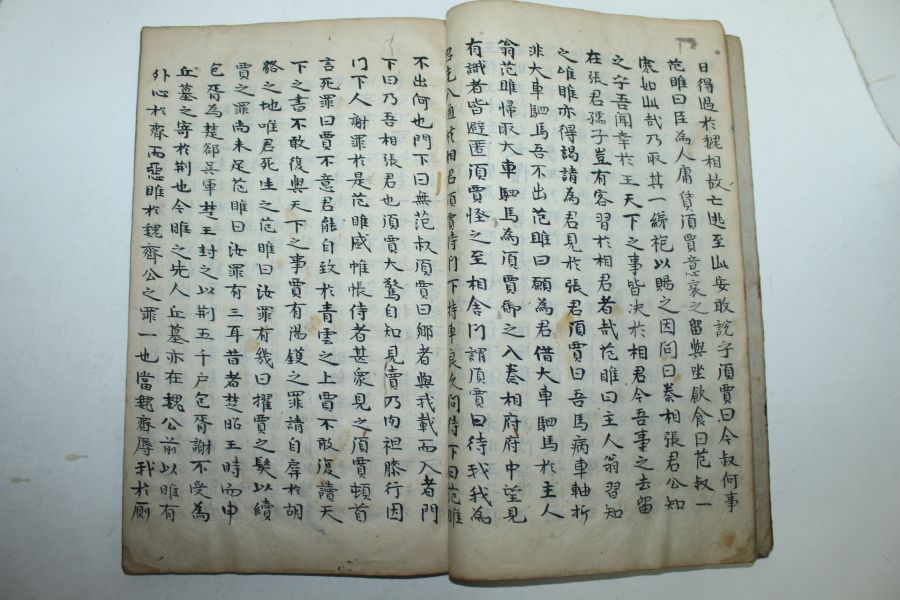 日得過於魏相故亡逃至此安敢說乎須賈曰今叔何事
范睢曰臣為人庸賃須賈意哀之留與坐飲食曰范叔一
寒如此哉乃取其一綈袍以賜之因問曰秦相張君公知
之乎吾聞幸於王天下之事皆決於相君今吾事之去留
在張君孺子豈有客習於相君者哉范睢曰主人翁習知
之唯睢亦得謁請為君見於張君須賈曰吾馬病車軸折
非大車駟馬吾不出范睢曰願為君借大車駟馬於主人
翁范睢歸取大車駟馬為須賈御之入秦相府府中望見
有識者皆避匿須賈怪之至相舍門謂須賈曰待我我為
君先入通於相君須賈待門下持車良久問待下曰范睢
不出何也門下曰無范叔須賈曰鄉者與我載而入者門
下曰乃吾相張君也須賈大驚自知見賣乃肉袒膝行因
門下人謝罪於是范睢盛帷帳侍者甚衆見之須賈頓首
言死罪曰賈不意君能自致於青雲之上賈不敢復讀天
下之書不敢復與天下之事賈有湯鑊之罪請自屏於胡
貉之地唯君死生之范睢曰汝罪有幾曰擢賈之髮以續
賈之罪尚未足范睢曰汝罪有三耳昔者楚昭王時而申
包胥為楚郤吳軍楚王封之以荆五千户包胥謝不受為
丘墓之寄於荆也今睢之先人丘墓亦在魏公前以睢有
外心於齊而惡睢於魏齊公之罪一也當魏齊辱我於厠